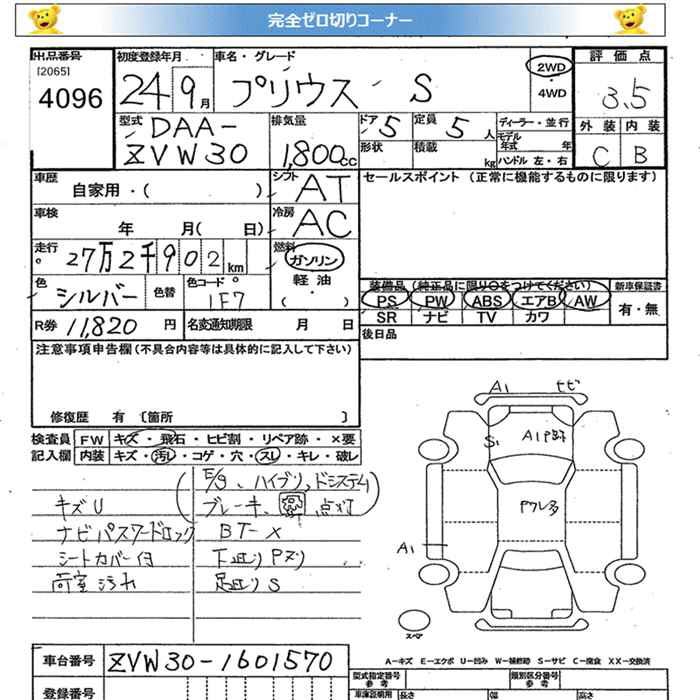 完全ゼロ切りコーナー
出品番号
[2065]
4096
初度登録年月
24年9月
車名・グレード
プリウス S
2WD
・
4WD
評価点
3.5
外装 内装
C B
型式
DAA-
ZVW30
排気量
1,800cc
ドア 5
定員 5人
形状
積載 kg
ディーラー・並行
モデル年式 年
ハンドル 左・右
車歴
自家用・( )
シフト
AT
セールスポイント(正常に機能するものに限ります)
車検
年 月( 日)
冷房
AC
走行
27万2千902km
燃料
ガソリン
軽油
( ・ )
色
シルバー
色替
色コード
1F7
装備品(純正品に限り○をつけてください)
PS PW ABS エアB AW
SR ナビ TV カワ
新車保証書
有・無
R券 11,820円
名変通知期限 月 日
後日品
注意事項申告欄(不具合内容等は具体的に記入して下さい)
修復歴 有 〔箇所 〕
検査員
記入欄
FW キズ・飛石・ヒビ割・リペア跡・×要
内装 キズ・汚レ・コゲ・穴・スレ・キレ・破レ
キズU
ナビパスワードロック
シートカバー付
荷室汚れ
(E/g、ハイブリッドシステム
ブレーキ、 点灯)
BT-×
下廻りPヌリ
足廻りS
A1 ヒビ
S1 A1P跡
Pワレ多
A1
スペア
A-キズ E-エクボ U-凹み W-補修跡 S-サビ C-腐食 XX-交換済
車台番号 ZVW30-1601570
登録番号
型式指定番号
参考
類別区分番号
参考
車庫証明用
長さ 幅 高さ